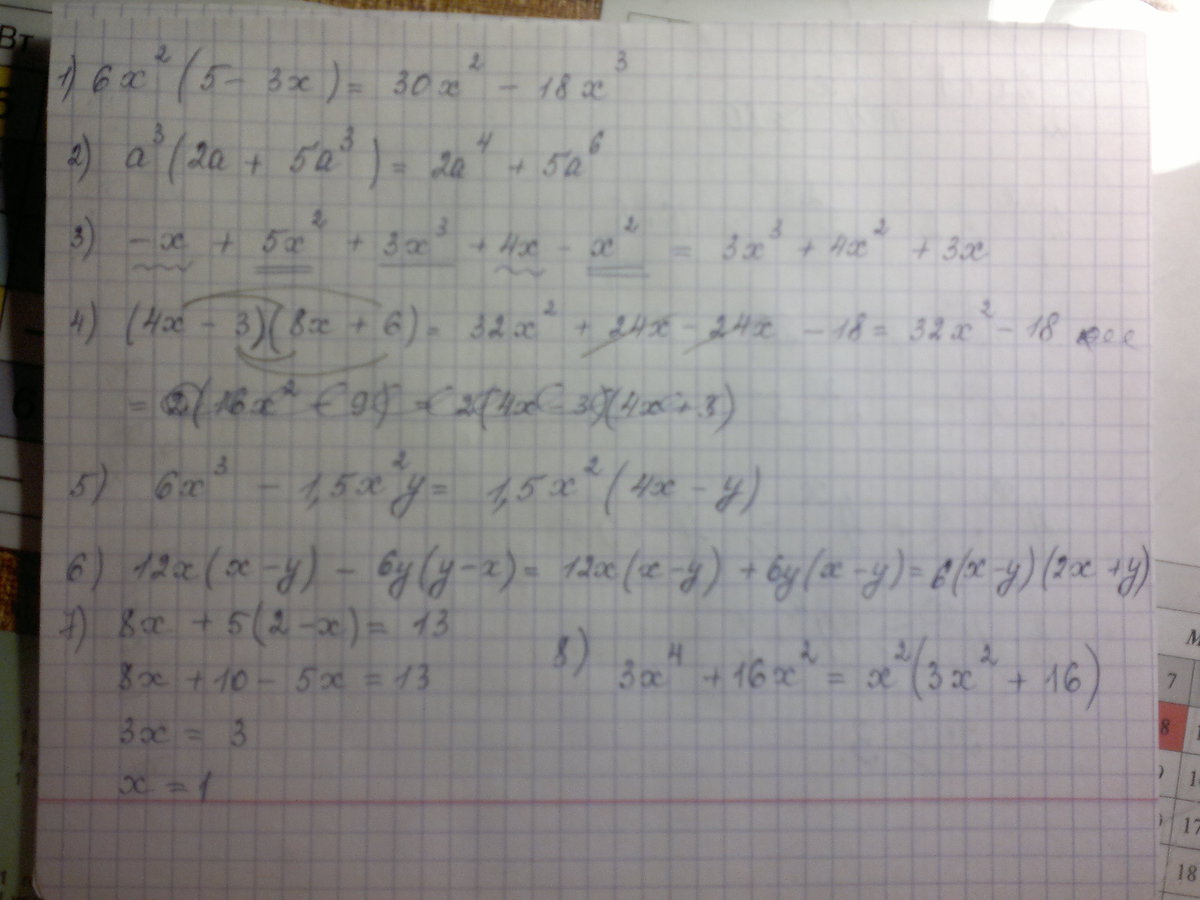 Вт
1) 6x² (5 - 3x) = 30x² - 18x³
2) a³ (2a + 5a³) = 2a⁴ + 5a⁶
3) -x + 5x² + 3x³ + 4x - x² = 3x³ + 4x² + 3x
4) (4x - 3)(8x + 6) = 32x² + 24x - 24x - 18 = 32x² - 18
= 2(16x² - 9) = 2(4x - 3)(4x + 3)
5) 6x³ - 1,5x²y = 1,5x² (4x - y)
6) 12x(x-y) - 6y(y-x) = 12x(x-y) + 6y(x-y) = 6(x-y)(2x+y)
7) 8x + 5(2-x) = 13
8x + 10 - 5x = 13
3x = 3
x = 1
8) 3x⁴ + 16x² = x²(3x² + 16)
7
8
17
18